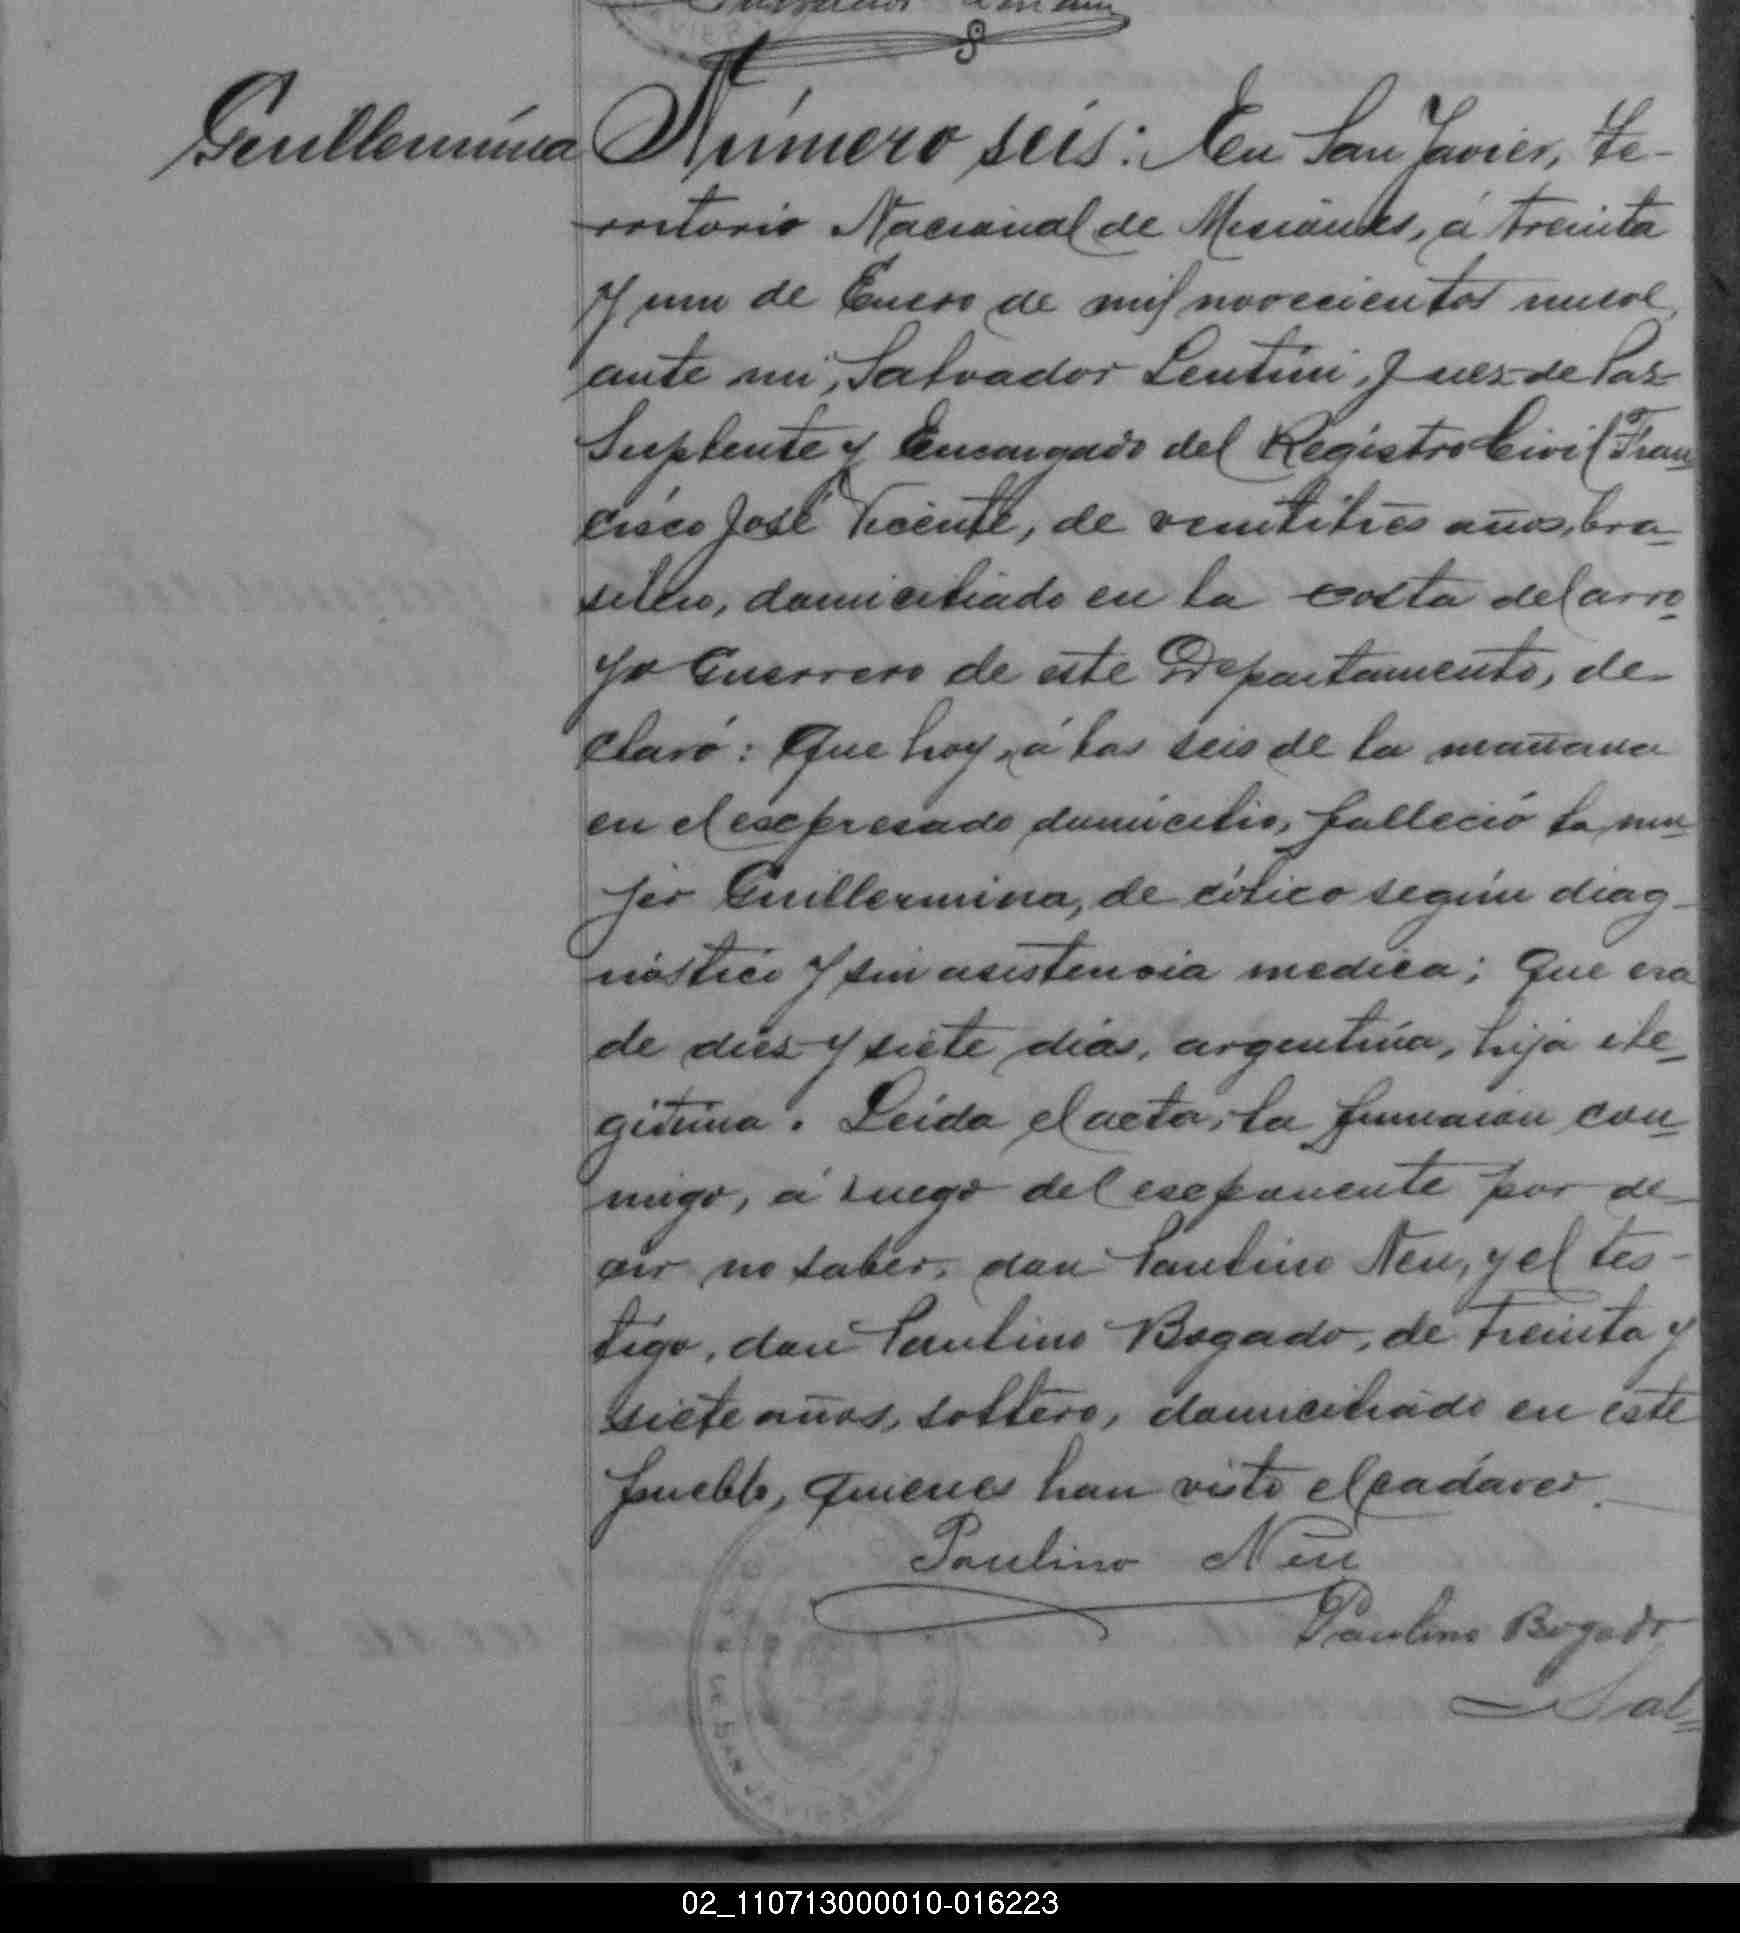 Salvador Lentini
Guillermina
Número seis: En San Javier, te-
rritorio Nacional de Misiones, á treinta
y un de Enero de mil novecientos nueve,
ante mi, Salvador Lentini, Juez de Paz
Suplente y Encargado del Registro Civil Fran
cisco José Vicente, de veintitres años, bra-
silero, domiciliado en la costa del arro-
yo Guerrero de este Departamento, de-
claró: Que hoy, á las seis de la mañana
en el espresado domicilio, falleció la mu-
jer Guillermina, de cólico según diag-
nóstico y sin asistencia medica; Que era
de diez y siete días, argentina, hija ile-
gítima. Leída el acta, la firmaron con-
migo, á ruego del esponente por de-
cir no saber, don Paulino Neu, y el tes-
tigo, don Paulino Bogado, de treinta y
siete años, soltero, domiciliado en este
pueblo, quienes han visto el cadáver.
Paulino Neu
Paulino Bogado
Sal-
DE SAN JAVIER
02_110713000010-016223